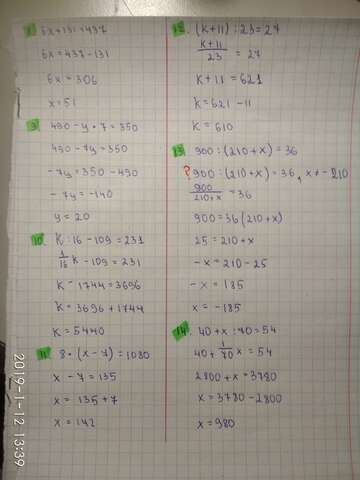 8. 6x+131=437
6x = 437-131
6x = 306
x = 51
9. 490 - y · 7 = 350
490 - 7y = 350
- 7y = 350 - 490
- 7y = -140
y = 20
10. k : 16 - 109 = 231
1/16 k - 109 = 231
k - 1744 = 3696
k = 3696 + 1744
k = 5440
11. 8 · (x - 7) = 1080
x - 7 = 135
x = 135 + 7
x = 142
12. (k+11) : 23 = 27
k+11/23 = 27
k + 11 = 621
k = 621 - 11
k = 610
13. 900 : (210 + x) = 36
? 900 : (210 + x) = 36, x ≠ - 210
900/210+x = 36
900 = 36 (210 + x)
25 = 210 + x
- x = 210 - 25
- x = 185
x = - 185
14. 40 + x : 70 = 54
40 + 1/70 x = 54
2800 + x = 3780
x = 3780 - 2800
x = 980
2019-1-12 13:39